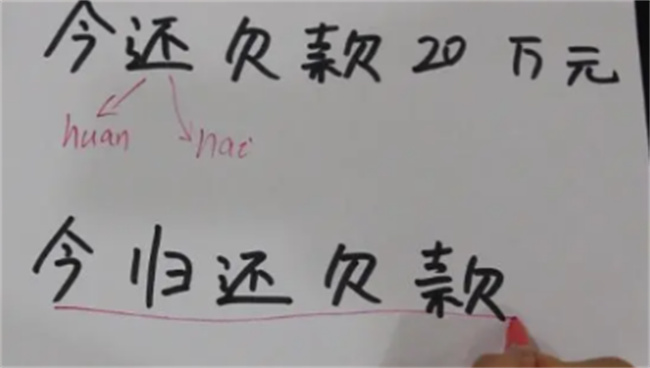 今还欠款20万元
huan hai
今归还欠款